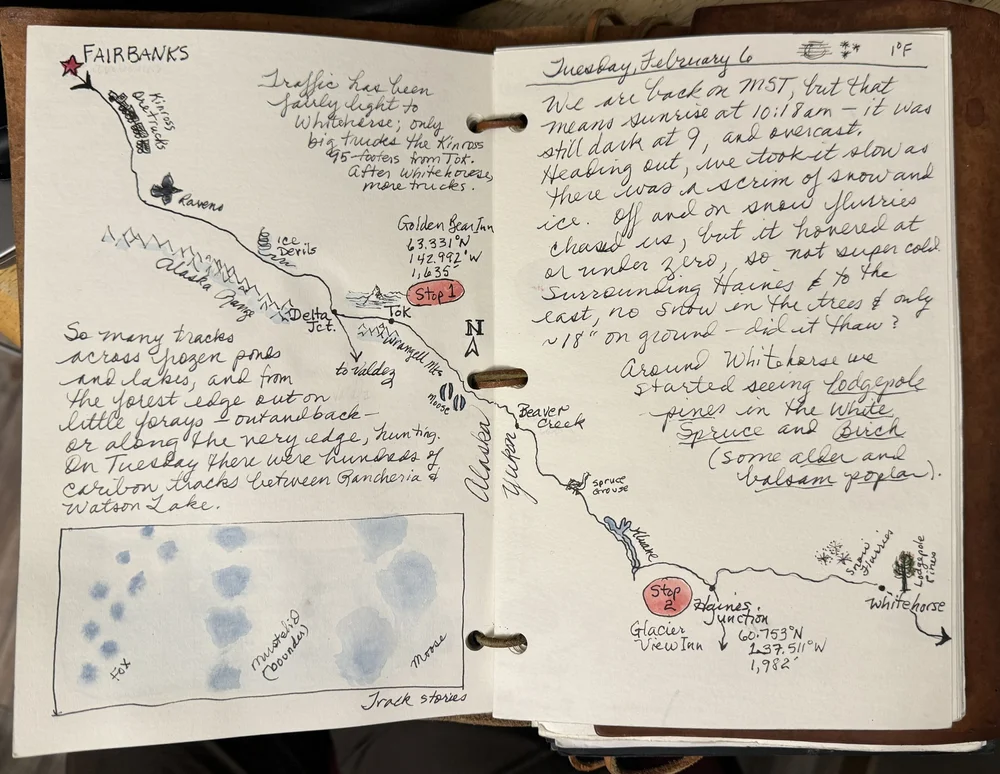 FAIRBANKS
Kinross
Ore trucks
Traffic has been
fairly light to
Whitehorse; only
big trucks the Kinross
95-footers from Tok.
After Whitehorse,
more trucks.
Ravens
Ice
Devils
Golden Bear Inn
63.331°N
142.992°W
1,635'
Stop 1
Alaska Range
Delta
Jct.
Tok
Wrangell Mts
to Valdez
N
Moose
Alaska
So many tracks
across frozen ponds
and lakes, and from
the forest edge out on
little forays - out and back -
or along the very edge, hunting.
On Tuesday there were hundreds of
caribou tracks between Rancheria &
Watson Lake.
Fox
mustelid
(bounder)
Moose
Track stories
Tuesday, February 6
1°F
We are back on MST, but that
means sunrise at 10:18am - it was
still dark at 9, and overcast.
Heading out, we took it slow as
there was a scrim of snow and
ice. Off and on snow flurries
chased us, but it hovered at
or under zero, so not super cold
Surrounding Haines & to the
east, no snow in the trees & only
~18" on ground - did it thaw?
Around Whitehorse we
started seeing lodgepole
pines in the White
Spruce and Birch
(some alder and
balsam poplar).
Yukon
Beaver
Creek
spruce
grouse
Kluane
Stop
2
Glacier
View Inn
Haines
Junction
60.753°N
137.511°W
1,982'
Snow
Flurries
Lodgepole
Pines
Whitehorse